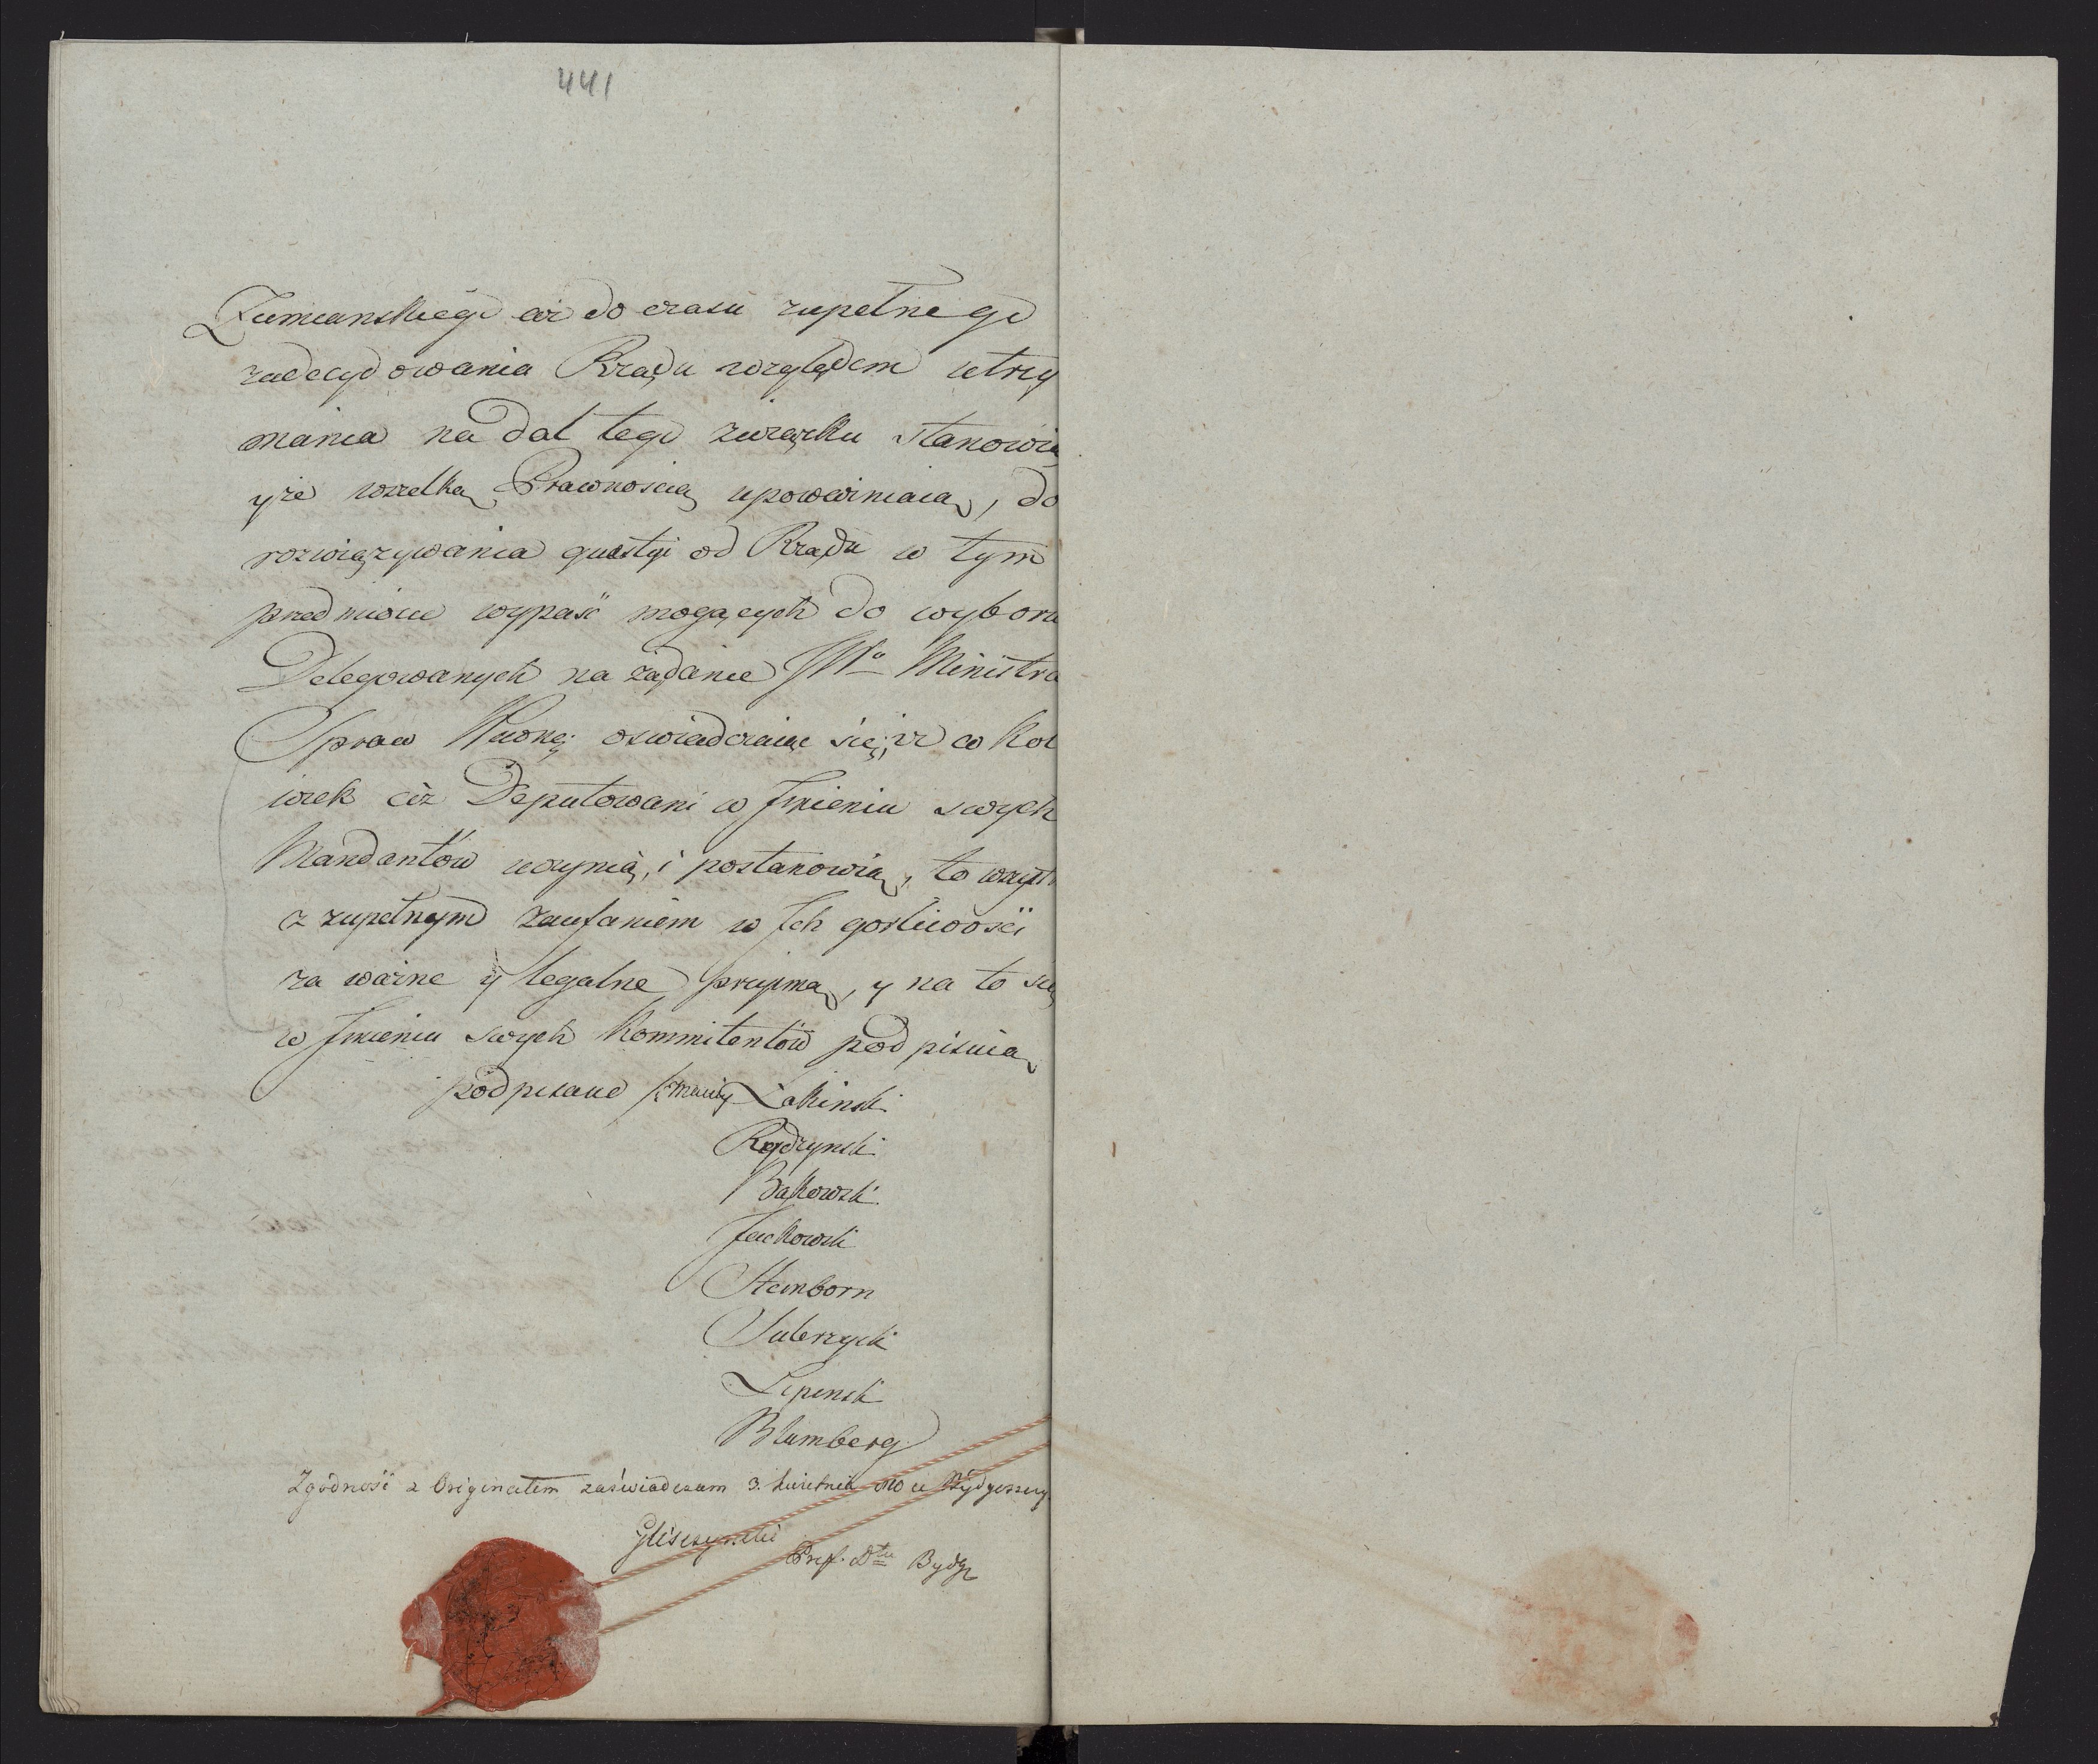 441
Ziemianskiego aż do czasu zupełnego
zadecydowania Rządu względem utrzy
mania na dal tego związku stanowią
yże wszelką Prawnoscią upoważniaią, do
rozwiązywania questyi od Rządu w tym
przedmiocie wypaść mogących do wyboru
Delegowanych na żądanie JWo Ministra
Spraw Wwnę: oswiadczaiąc się, iż co kol
wiek ciż Deputowani w Jmieniu swych
Mandantów uczynią, i postanowią, to wszyst
z zupełnym zaufaniem w Jch gorliwości
za ważne ÿ legalne przyimą, y na to się
w Jmieniu swych Kommitentów podpisuią
podpisano Maciey Łakinski
Rądzynski
Bąkowski
Jackowski
Steinborn
Sulerzycki
Lipinski
Blumberg
Zgodność z Originałem zaświadczam 3. kwietnia 810 w Bydgoszczy
Gliszczynski
Pref. Dtu Bydg